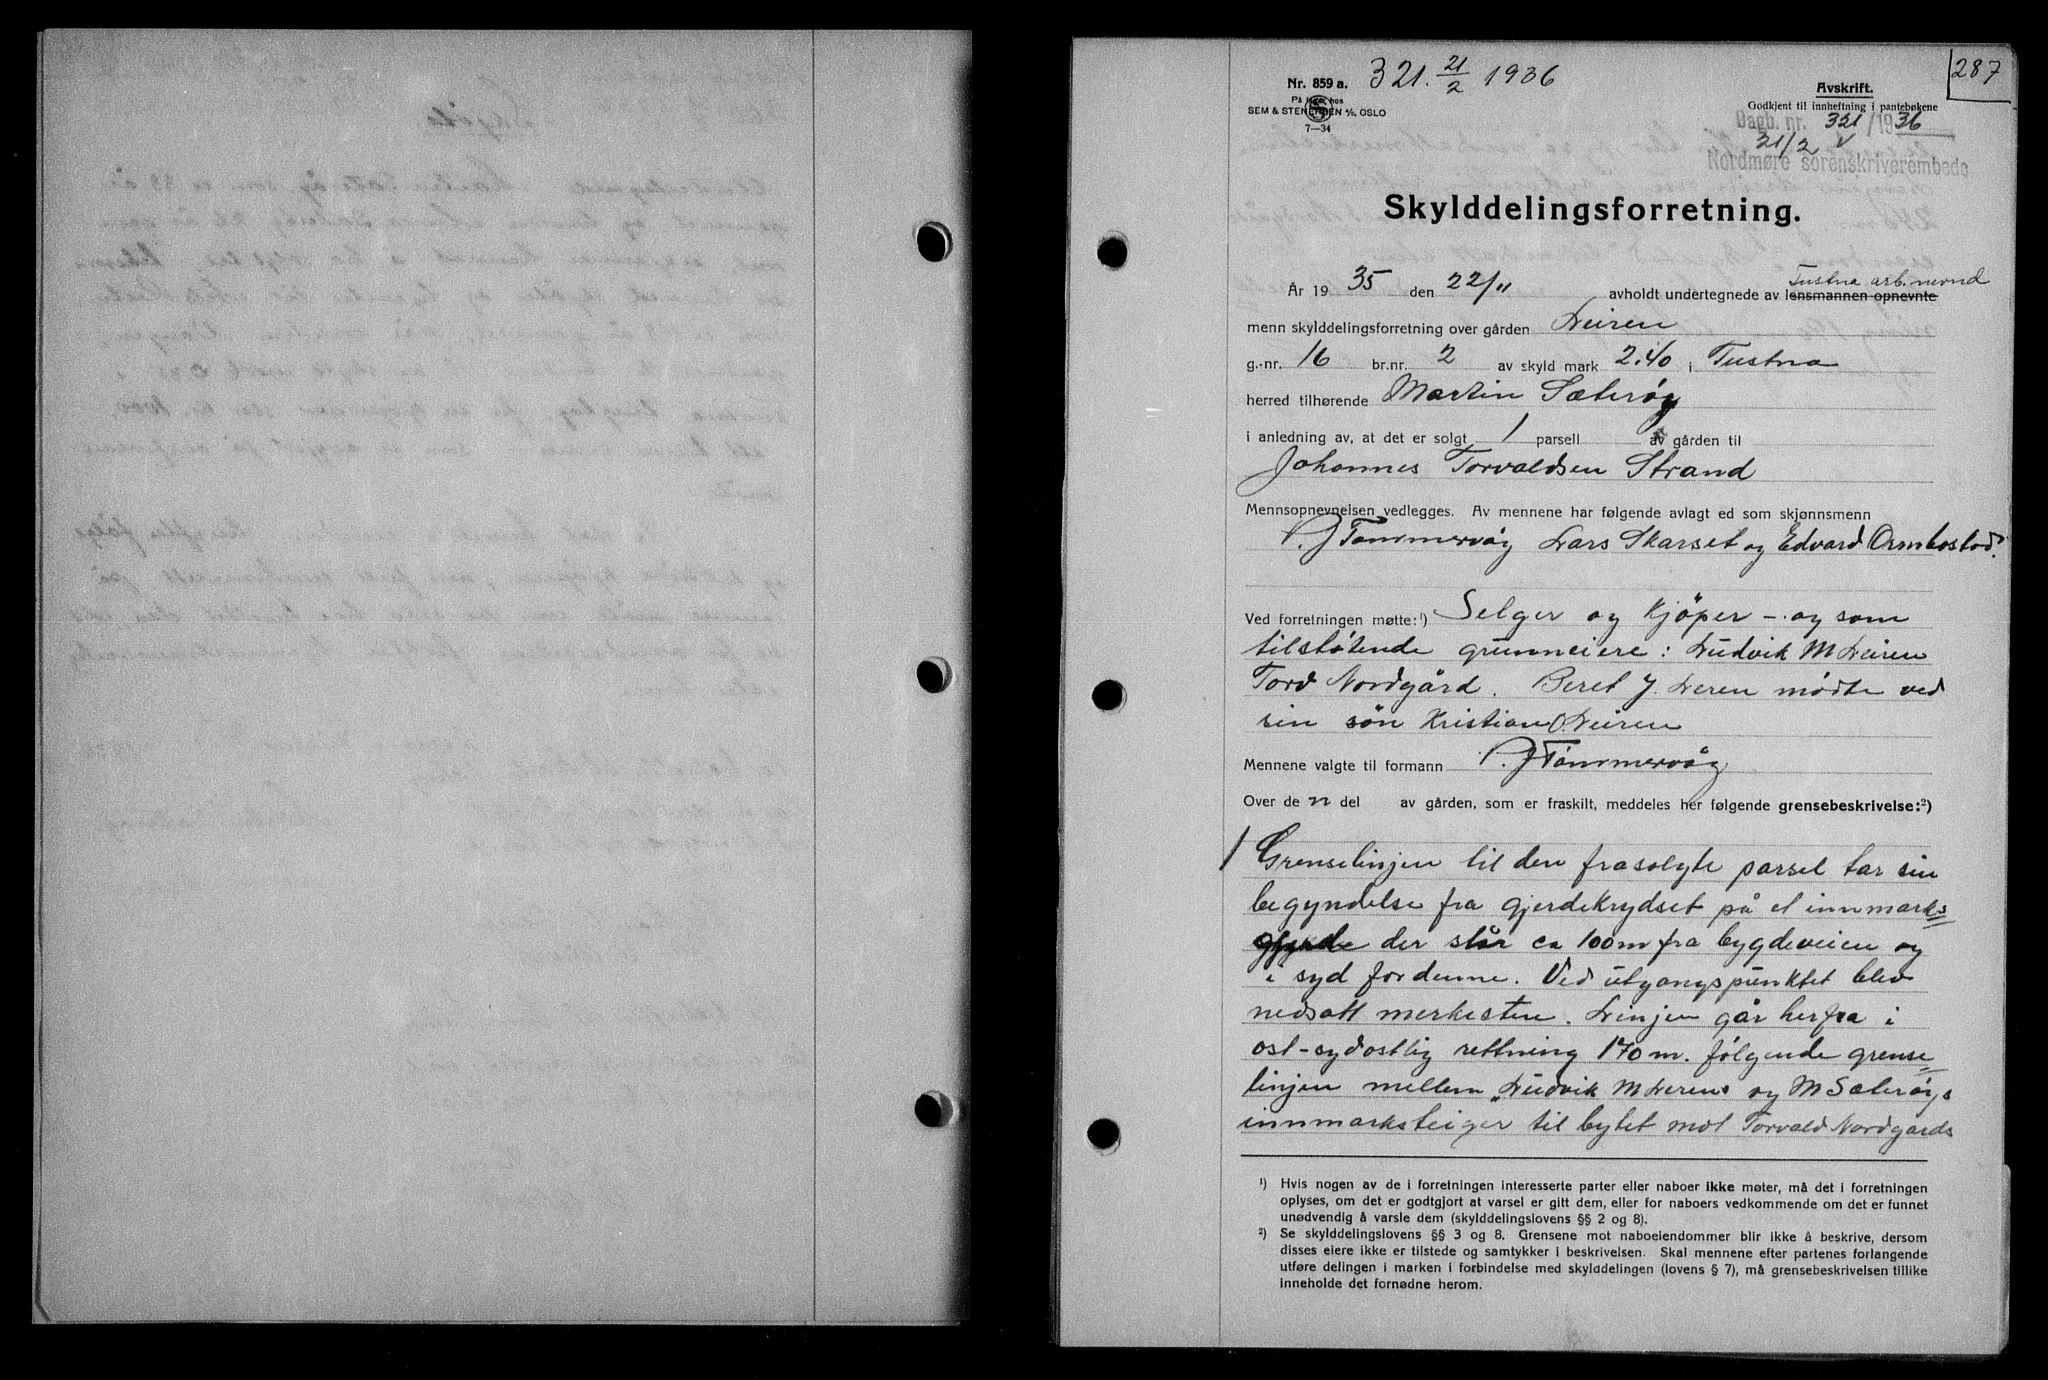 287
Nr. 859 a. 321. 21/2 1936
På lager hos
SEM & STENERSEN A/S. OSLO
7—34
Avskrift.
Godkjent til innheftning i pantebøkene
Dagb. nr. 321/1936
21/2
Nordmøre sorenskriverembede
Skylddelingsforretning.
År 1935 den 22/11 avholdt undertegnede av lensmannen opnevnte Tustna arb.nevnd
menn skylddelingsforretning over gården Leiren
g.-nr. 16 br.nr. 2 av skyld mark 2.40 i Tustna
herred tilhørende Martin Sæterøy
i anledning av, at det er solgt 1 parsell av gården til
Johannes Torvaldsen Strand
Mennsopnevnelsen vedlegges. Av mennene har følgende avlagt ed som skjønnsmenn
P. J Tømmervåg Lars Skarset og Edvard Ormbostad.
Ved forretningen møtte:¹) Selger og Kjöper — og som
tilstøtende grunneiere: Ludvik M Leiren
Tord Nordgård. Beret J. Leren mødte ved
sin søn Kristian O. Leiren
Mennene valgte til formann P. J Tømmervåg
Over den del av gården, som er fraskilt, meddeles her følgende grensebeskrivelse:²)
1 Grenselinjen til den frasolgte parsel tar sin
begyndelse fra gjerdekrydset på et innmarks=
gjerde der står ca 100m fra bygdeveien og
i syd for denne. Ved utgangspunktet blev
nedsatt merkesten. Linjen går herfra i
ost-sydostlig rettning 170 m. følgende grense=
linjen mellem Ludvik M Lerens og M Sæterøys
innmarksteiger til bytet mot Torvald Nordgards
¹) Hvis nogen av de i forretningen interesserte parter eller naboer ikke møter, må det i forretningen
oplyses, om det er godtgjort at varsel er gitt dem, eller for naboers vedkommende om det er funnet
unødvendig å varsle dem (skylddelingslovens §§ 2 og 8).
²) Se skylddelingslovens §§ 3 og 8. Grensene mot naboeiendommer blir ikke å beskrive, dersom
disses eiere ikke er tilstede og samtykker i beskrivelsen. Skal mennene efter partenes forlangende
utføre delingen i marken i forbindelse med skylddelingen (lovens § 7), må grensebeskrivelsen tillike
inneholde det fornødne herom.